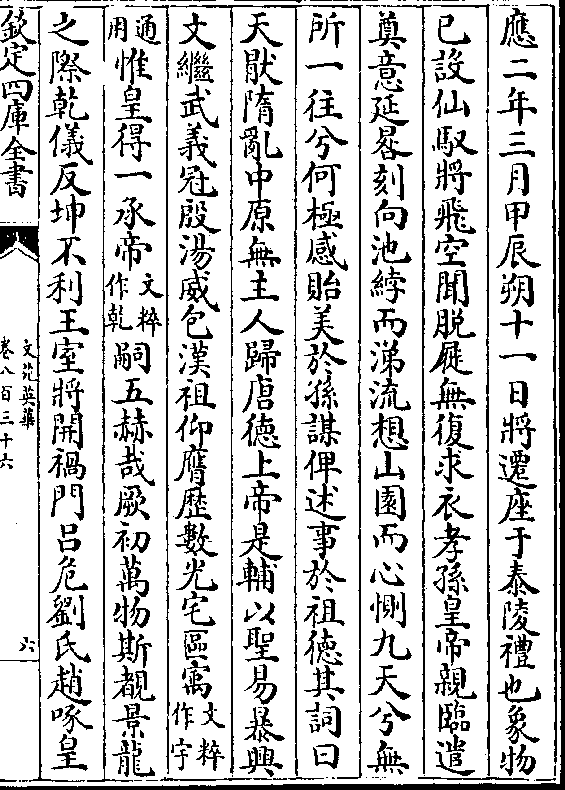 應二年三月甲辰朔十一日將遷座于泰陵禮也象物
已設仙馭將飛空聞脫屣無復求衣孝孫皇帝親臨遣
奠意延晷刻向池綍而涕流想山園而心惻九天兮無
所一往兮何極感貽美於孫謀俾述事於祖德其詞曰
天猒隋亂中原無主人歸唐德上帝是輔以聖易暴興
文繼武義冠殷湯威包漢祖仰膺歴數光宅區寓文粹作宇
通用惟皇得一承帝文粹作乾嗣五赫哉厥初萬物斯覩景龍
之際乾儀反坤不利王室將開禍門吕危劉氏趙啄皇
欽定四庫全書
文苑英華
卷八百三十六
六